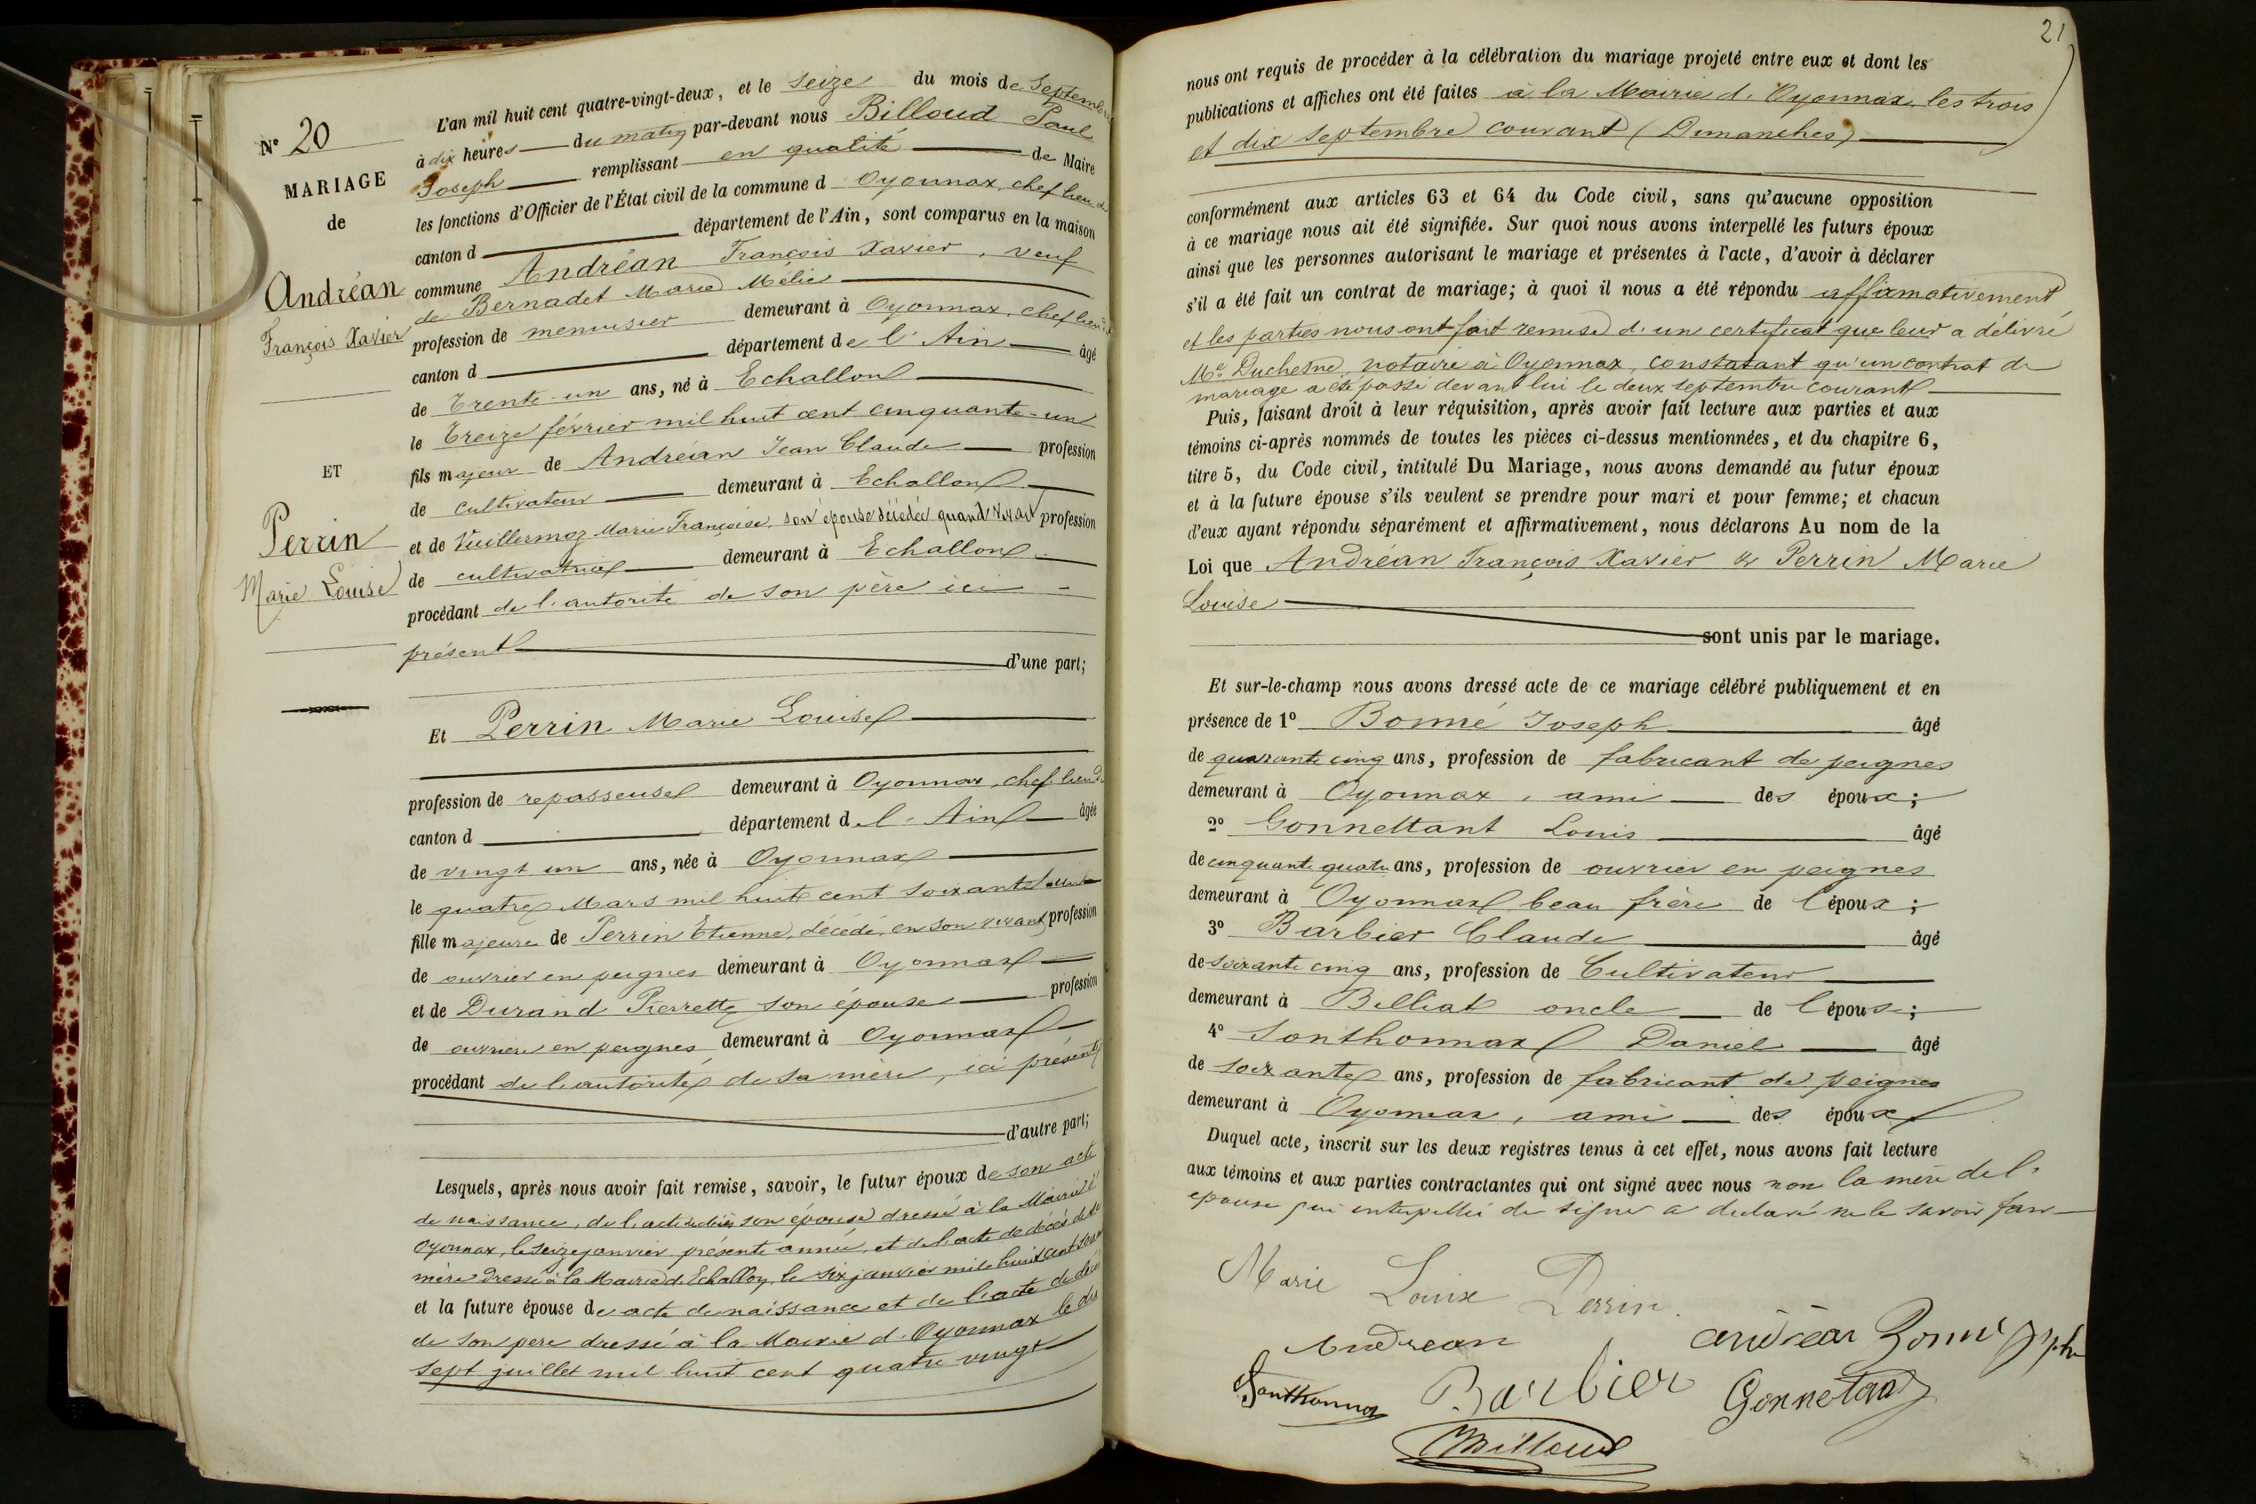 N° 20
MARIAGE
de
Andréan
François Xavier
ET
Perrin
Marie Louise
L'an mil huit cent quatre-vingt-deux, et le seize du mois de Septembre
à dix heures du matin par-devant nous Billoud Paul
Joseph remplissant en qualité de Maire
les fonctions d'Officier de l'État civil de la commune d Oyonnax, chef lieu de
canton d département de l'Ain, sont comparus en la maison
commune Andréan François Xavier, veuf
de Bernadet Marie Mélie
profession de menuisier demeurant à Oyonnax, chef lieu de
canton d département de l'Ain âgé
de Trente-un ans, né à Echallon
le Treize février mil huit cent cinquante-un
fils majeur de Andréan Jean Claude profession
de cultivateur demeurant à Echallon
et de Vuillermoz Marie Françoise, son épouse décédée quand vivait profession
de cultivatrice demeurant à Echallon
procédant de l'autorité de son père ici
présent d'une part;
Et Perrin Marie Louise
profession de repasseuse demeurant à Oyonnax, chef lieu de
canton d département d l'Ain âgée
de vingt un ans, née à Oyonnax
le quatre Mars mil huit cent soixante
fille majeure de Perrin Etienne, décédé, en son vivant profession
de ouvrier en peignes demeurant à Oyonnax
et de Durand Pierrette son épouse profession
de ouvrière en peignes demeurant à Oyonnax
procédant de l'autorité de sa mère, ici présente
d'autre part;
Lesquels, après nous avoir fait remise, savoir, le futur époux de son acte
de naissance, de l'acte de décès son épouse dressé à la Mairie d'
Oyonnax, le seize janvier présente année, et de l'acte de décès de sa
mère dressé à la Mairie d'Echallon, le six janvier mil huit cent
et la future épouse de acte de naissance et de l'acte de décès
de son père dressé à la Mairie d'Oyonnax le dix
sept juillet mil huit cent quatre vingt
21
nous ont requis de procéder à la célébration du mariage projeté entre eux et dont les
publications et affiches ont été faites à la Mairie d'Oyonnax, les trois
et dix septembre courant (Dimanches)
conformément aux articles 63 et 64 du Code civil, sans qu'aucune opposition
à ce mariage nous ait été signifiée. Sur quoi nous avons interpellé les futurs époux
ainsi que les personnes autorisant le mariage et présentes à l'acte, d'avoir à déclarer
s'il a été fait un contrat de mariage; à quoi il nous a été répondu affirmativement
et les parties nous ont fait remise d'un certificat que leur a délivré
Me Duchesne, notaire à Oyonnax, constatant qu'un contrat de
mariage a été passé devant lui le deux septembre courant
Puis, faisant droit à leur réquisition, après avoir fait lecture aux parties et aux
témoins ci-après nommés de toutes les pièces ci-dessus mentionnées, et du chapitre 6,
titre 5, du Code civil, intitulé Du Mariage, nous avons demandé au futur époux
et à la future épouse s'ils veulent se prendre pour mari et pour femme; et chacun
d'eux ayant répondu séparément et affirmativement, nous déclarons Au nom de la
Loi que Andréan François Xavier & Perrin Marie
Louise
sont unis par le mariage.
Et sur-le-champ nous avons dressé acte de ce mariage célébré publiquement et en
présence de 1° Bonné Joseph âgé
de quarante cinq ans, profession de fabricant de peignes
demeurant à Oyonnax, ami des époux;
2° Gonnettant Louis âgé
de cinquante quatre ans, profession de ouvrier en peignes
demeurant à Oyonnax beau frère de l'époux;
3° Barbier Claude âgé
de soixante cinq ans, profession de Cultivateur
demeurant à Billiat oncle de l'épouse;
4° Sonthonnax Daniel âgé
de soixante ans, profession de fabricant de peignes
demeurant à Oyonnax, ami des époux
Duquel acte, inscrit sur les deux registres tenus à cet effet, nous avons fait lecture
aux témoins et aux parties contractantes qui ont signé avec nous non la mère de l'
épouse qui interpellée de signer a déclaré ne le savoir faire
Marie Louise Perrin
Andrean andréan Bonné Jsph
Sonthonnax Barbier Gonnetant
Billoud